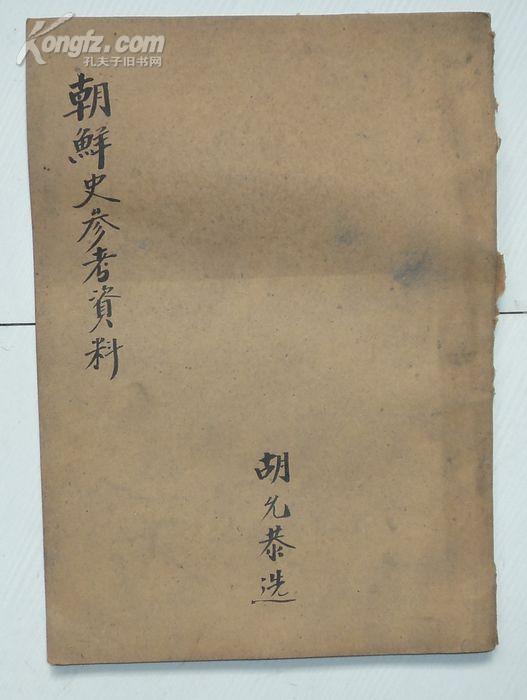 Kongfz.com
孔夫子旧书网
朝鮮史参考資料
胡允恭选